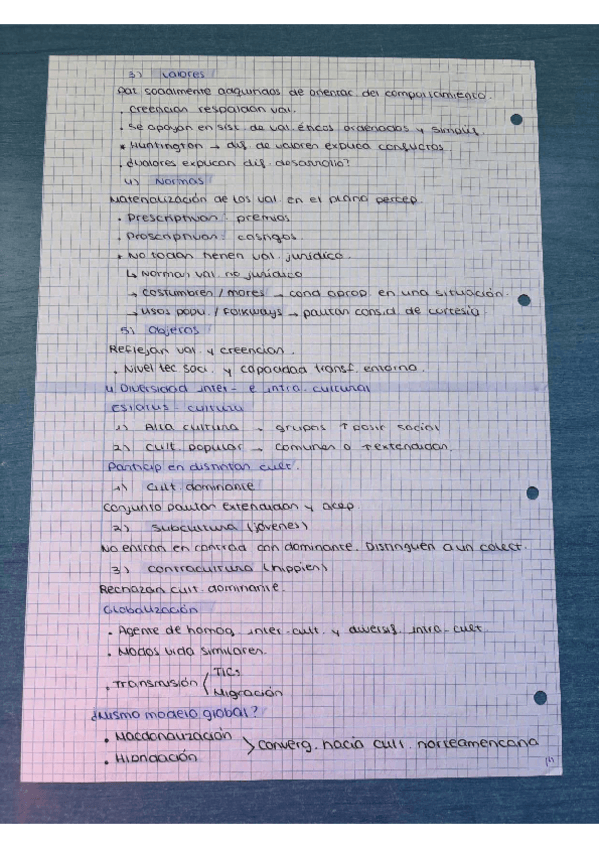 3) Valores
Pat. socialmente adquiridos de orientac. del comportamiento.
. Creencias respaldan val.
. Se apoyan en sist. de val. éticos ordenados y simplif.
* Huntington → dif. de valores explica conflictos
. ¿Valores explican dif. desarrollo?
4) Normas
Materialización de los val. en el plano percep.
. Prescriptivas: premios
. Proscriptivas: castigos
* No todas tienen val. jurídico.
↳ Normas val. no jurídico
→ Costumbres / mores → cond. aprop. en una situación.
→ Usos popu. / Folkways → pautan consid. de cortesía
5) Objetos
Reflejan val. y creencias.
. Nivel tec. soci. y capacidad transf. entorno.
4 Diversidad inter- e intra- cultural
Estatus - cultura
1) Alta cultura → grupos ↑ posic social
2) Cult. popular → comunes o + extendidas.
Particip en distintas cult.
1) Cult. dominante
Conjunto pautas extendidas y acep.
2) Subcultura (jóvenes)
No entran en contrad. con dominante. Distinguen a un colect.
3) Contracultura (hippies)
Rechazan cult. dominante.
Globalización
. Agente de homog. inter-cult. y diversif. intra-cult.
. Modos vida similares.
. Transmisión ( TICs
Migración
¿Mismo modelo global?
. Macdonalización
> Converg. hacia cult. norteamericana
. Hibridación